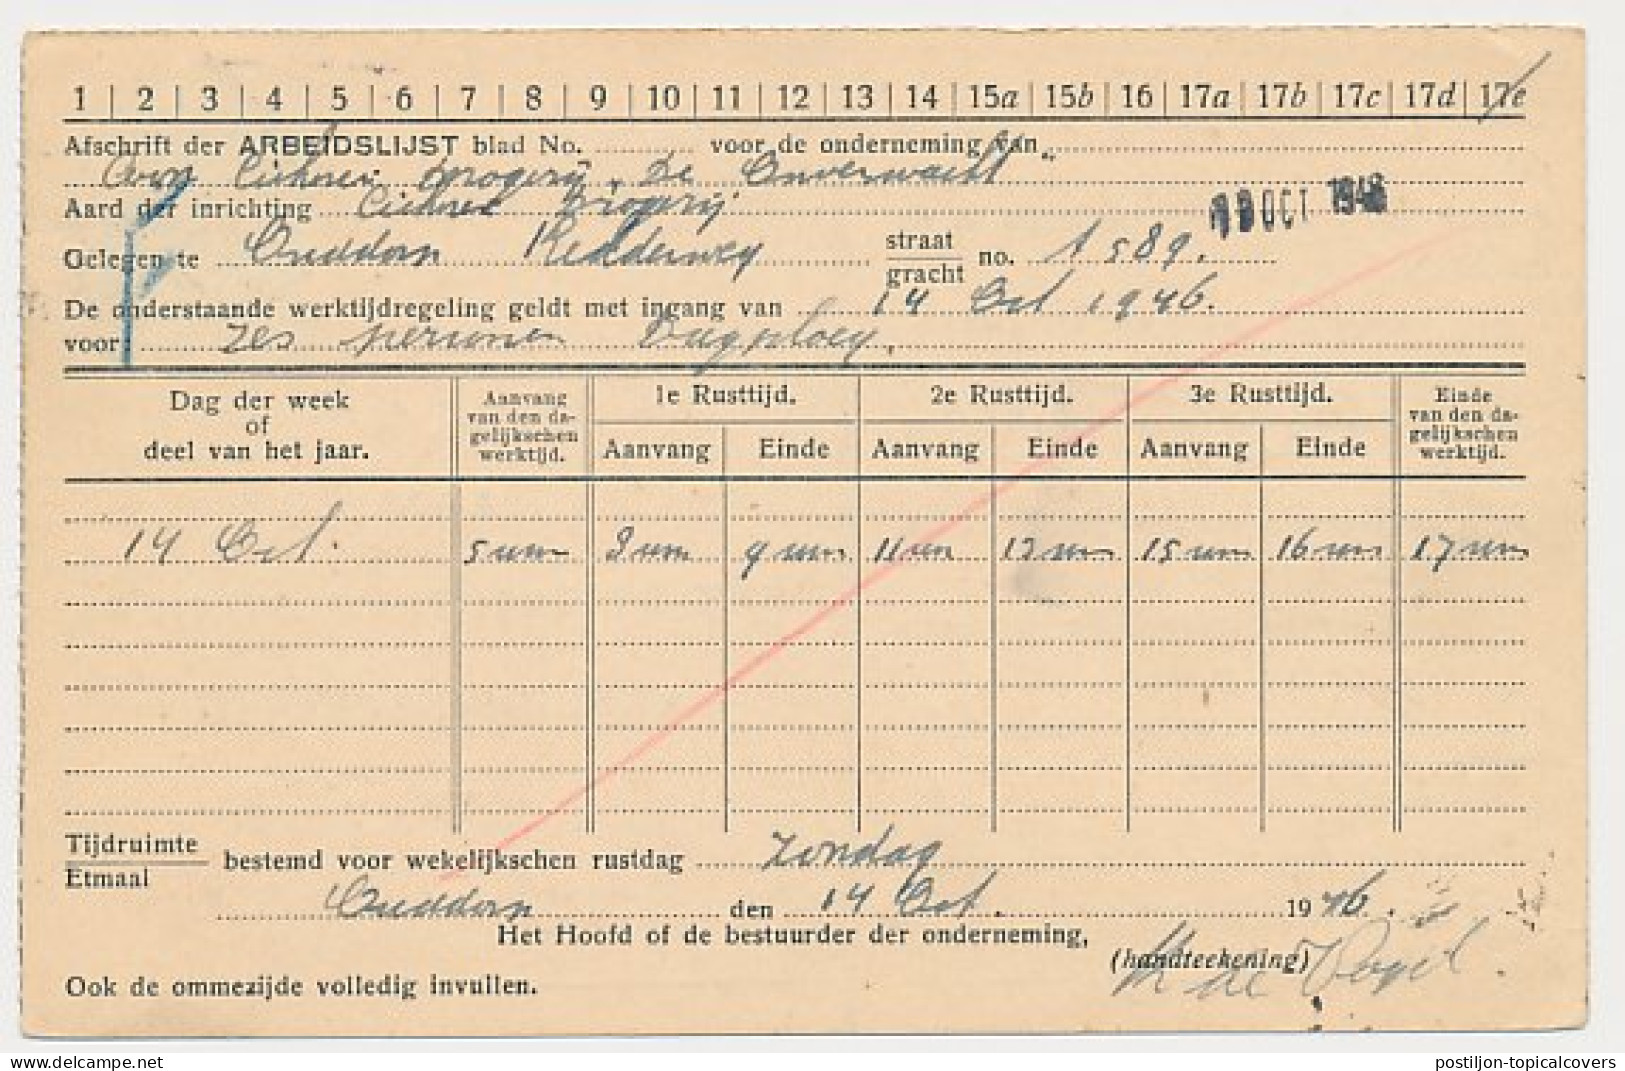 1 | 2 | 3 | 4 | 5 | 6 | 7 | 8 | 9 | 10 | 11 | 12 | 13 | 14 | 15a | 15b | 16 | 17a | 17b | 17c | 17d | 17e
Afschrift der ARBEIDSLIJST blad No. voor de onderneming van
Drogerij "De Onverwacht"
Aard der inrichting Cichorei Drogerij
OCT 1946
Gelegen te Ouddorp straat/gracht no. 1589.
De onderstaande werktijdregeling geldt met ingang van 14 Oct 1946.
voor: zes personen Dagploeg.
Dag der week of deel van het jaar. Aanvang van den dagelijkschen werktijd. 1e Rusttijd. 2e Rusttijd. 3e Rusttijd. Einde van den dagelijkschen werktijd.
Aanvang Einde Aanvang Einde Aanvang Einde
14 Oct. 5 uur uur 9 uur 11 uur 12 uur 15 uur 16 uur 17 uur
Tijdruimte/Etmaal bestemd voor wekelijkschen rustdag Zondag
Ouddorp den 14 Oct. 1946.
Het Hoofd of de bestuurder der onderneming,
(handteekening)
Ook de ommezijde volledig invullen.
www.delcampe.net
postiljon-topicalcovers